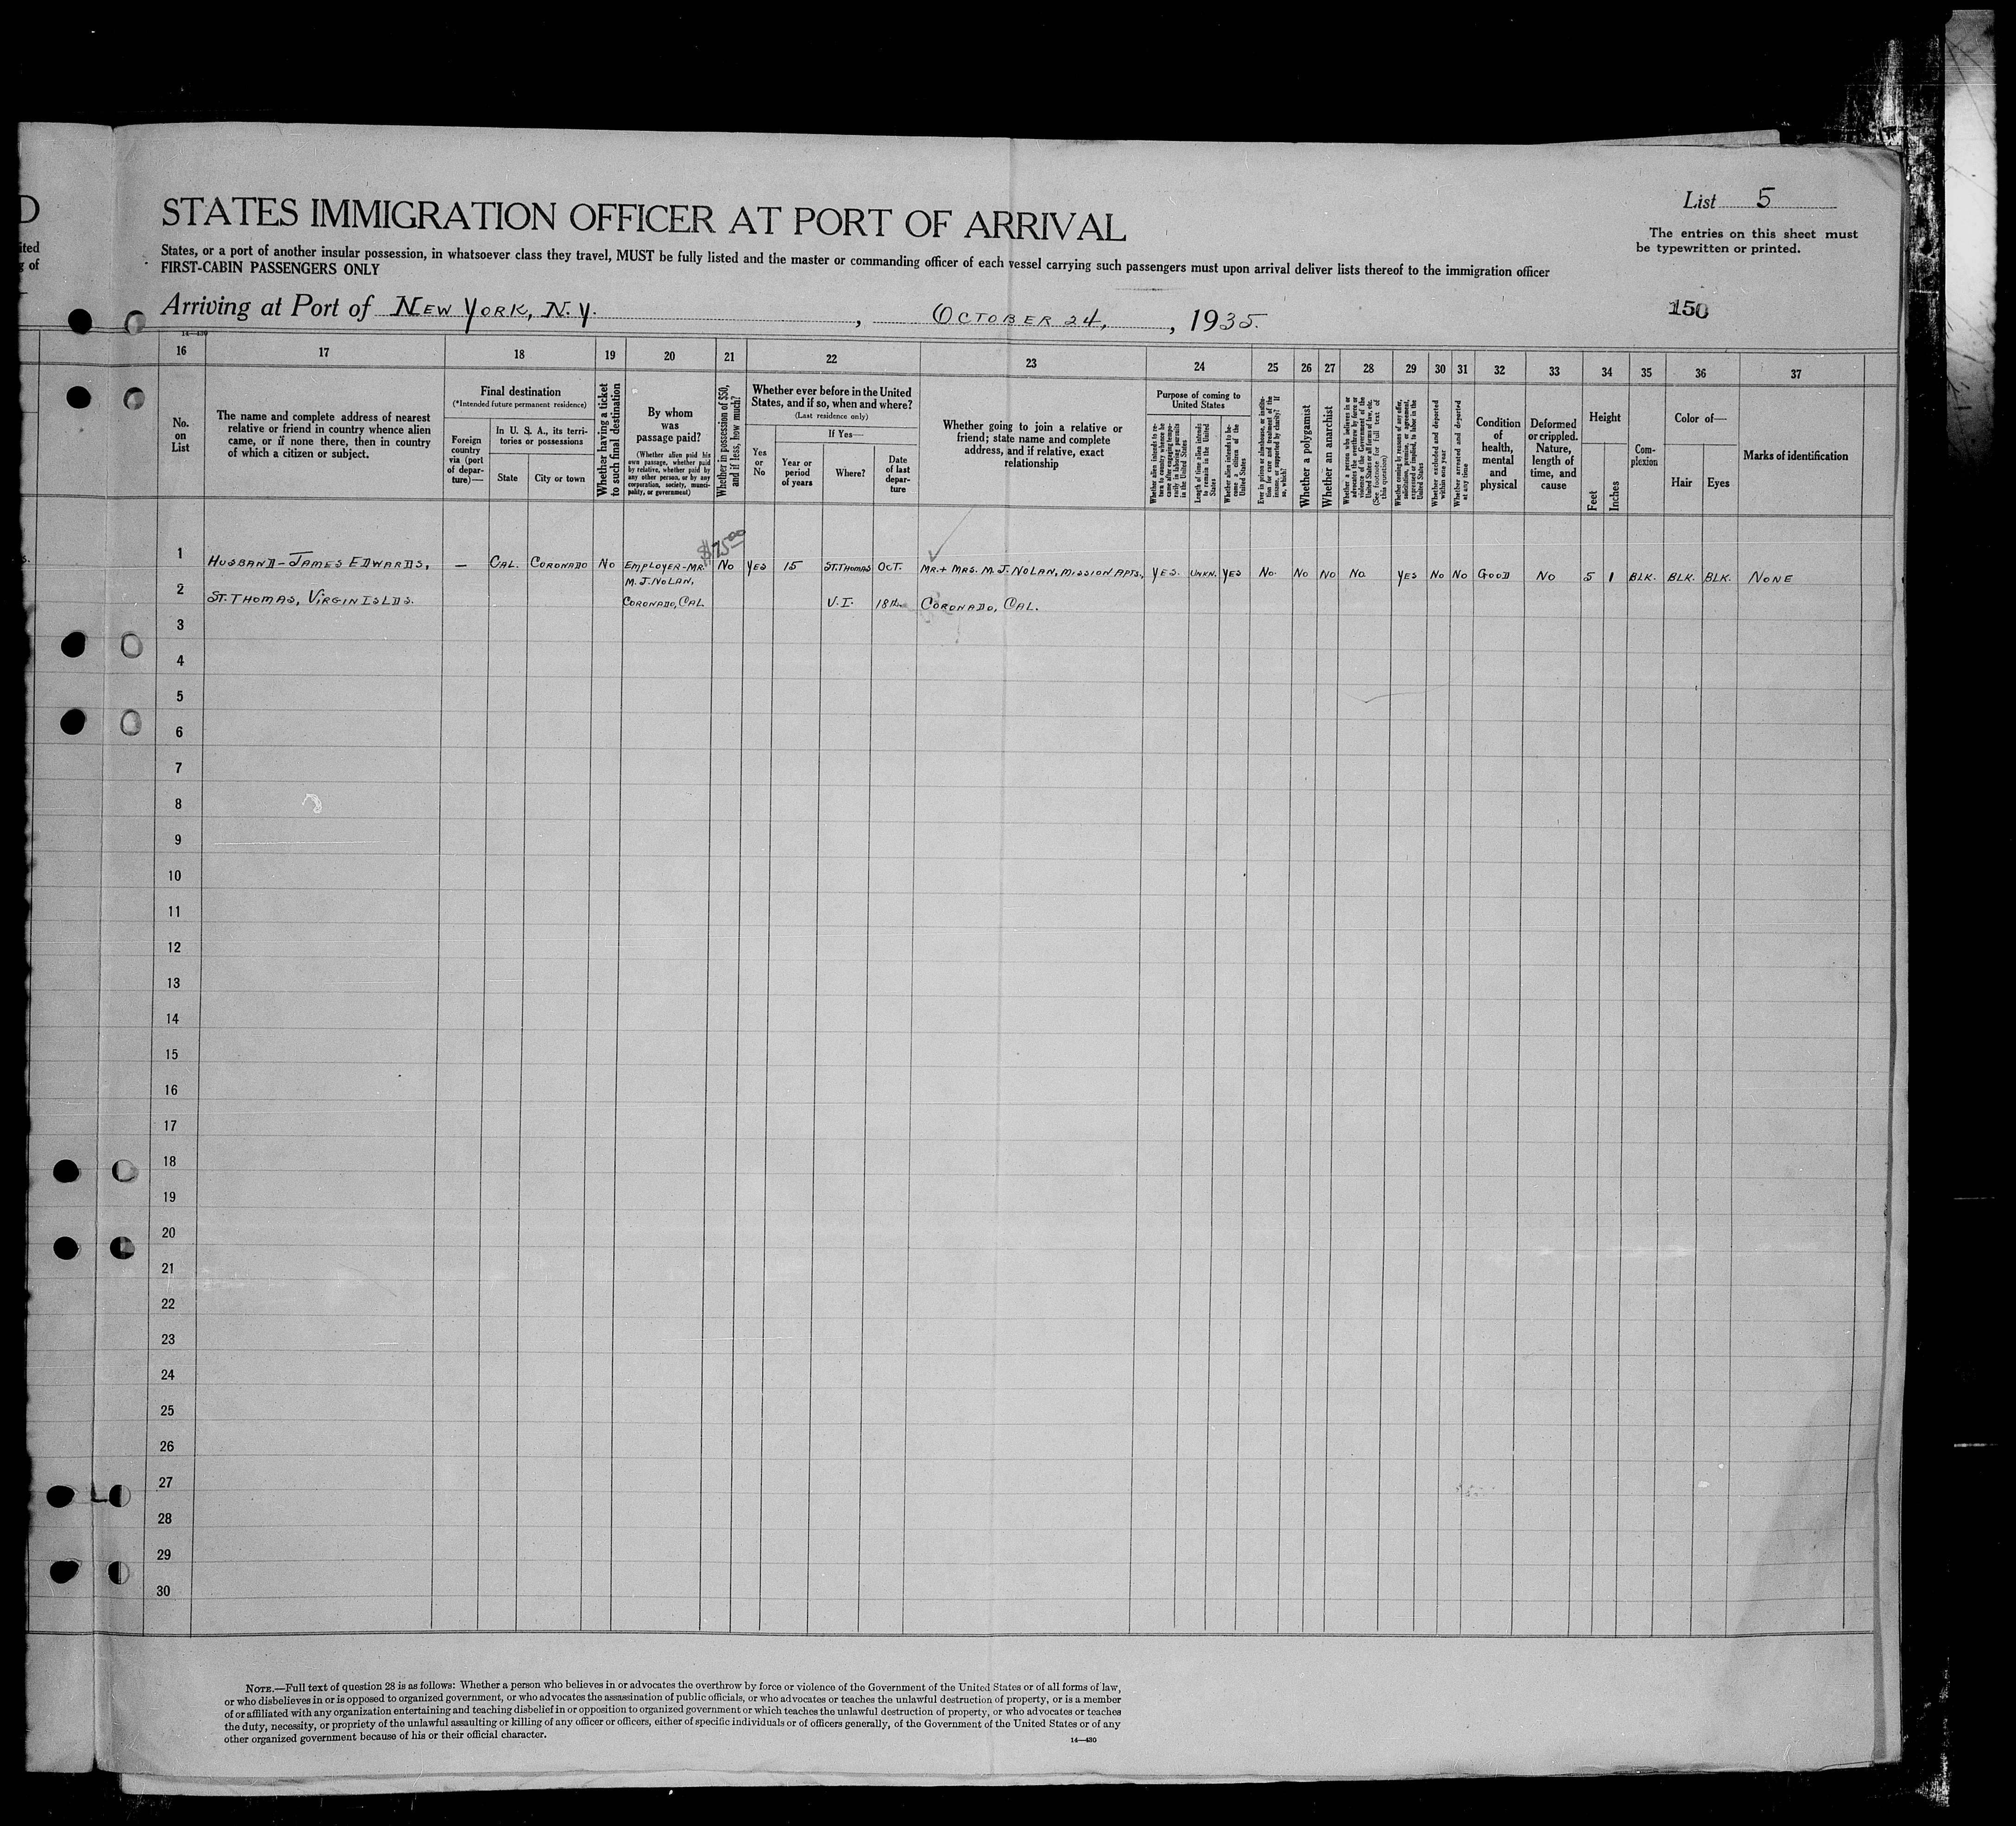 D
ited
g of
STATES IMMIGRATION OFFICER AT PORT OF ARRIVAL
List 5
The entries on this sheet must
be typewritten or printed.
States, or a port of another insular possession, in whatsoever class they travel, MUST be fully listed and the master or commanding officer of each vessel carrying such passengers must upon arrival deliver lists thereof to the immigration officer
FIRST-CABIN PASSENGERS ONLY
Arriving at Port of NEW YORK, N.Y. , OCTOBER 24, , 1935.
150
14—430
16 17 18 19 20 21 22 23 24 25 26 27 28 29 30 31 32 33 34 35 36 37
No.
on
List
The name and complete address of nearest
relative or friend in country whence alien
came, or if none there, then in country
of which a citizen or subject.
Final destination
(*Intended future permanent residence)
Foreign
country
via (port
of depar-
ture)—
In U. S. A., its terri-
tories or possessions
State
City or town
Whether having a ticket
to such final destination
By whom
was
passage paid?
(Whether alien paid his
own passage, whether paid
by relative, whether paid by
any other person, or by any
corporation, society, munici-
pality, or government)
Whether in possession of $50,
and if less, how much?
Whether ever before in the United
States, and if so, when and where?
(Last residence only)
Yes
or
No
If Yes—
Year or
period
of years
Where?
Date
of last
depar-
ture
Whether going to join a relative or
friend; state name and complete
address, and if relative, exact
relationship
Purpose of coming to
United States
Whether alien intends to re-
turn to country whence he
came after engaging tempo-
rarily in laboring pursuits
in the United States
Length of time alien intends
to remain in the United
States
Whether alien intends to be-
come a citizen of the
United States
Ever in prison or almshouse, or institu-
tion for care and treatment of the
insane, or supported by charity? If
so, which?
Whether a polygamist
Whether an anarchist
Whether a person who believes in or
advocates the overthrow by force or
violence of the Government of the
United States or all forms of law, etc.
(See footnote for full text of
this question)
Whether coming by reasons of any offer,
solicitation, promise, or agreement,
expressed or implied, to labor in the
United States
Whether excluded and deported
within one year
Whether arrested and deported
at any time
Condition
of
health,
mental
and
physical
Deformed
or crippled.
Nature,
length of
time, and
cause
Height
Feet
Inches
Com-
plexion
Color of—
Hair
Eyes
Marks of identification
$75.00
1 HUSBAND-JAMES EDWARDS, — CAL. CORONADO NO EMPLOYER-MR. NO YES 15 ST.THOMAS OCT. MR.+ MRS. M. J. NOLAN, MISSION APTS., YES. UNKN. YES NO. NO NO NO YES NO NO GOOD NO 5 1 BLK. BLK. BLK. NONE
M. J. NOLAN,
2 ST. THOMAS, VIRGIN ISLDS. CORONADO, CAL. V. I. 18th CORONADO, CAL.
3
4
5
6
7
8
9
10
11
12
13
14
15
16
17
18
19
20
21
22
23
24
25
26
27
28
29
30
NOTE.—Full text of question 28 is as follows: Whether a person who believes in or advocates the overthrow by force or violence of the Government of the United States or of all forms of law,
or who disbelieves in or is opposed to organized government, or who advocates the assassination of public officials, or who advocates or teaches the unlawful destruction of property, or is a member
of or affiliated with any organization entertaining and teaching disbelief in or opposition to organized government or which teaches the unlawful destruction of property, or who advocates or teaches
the duty, necessity, or propriety of the unlawful assaulting or killing of any officer or officers, either of specific individuals or of officers generally, of the Government of the United States or of any
other organized government because of his or their official character.
14—430